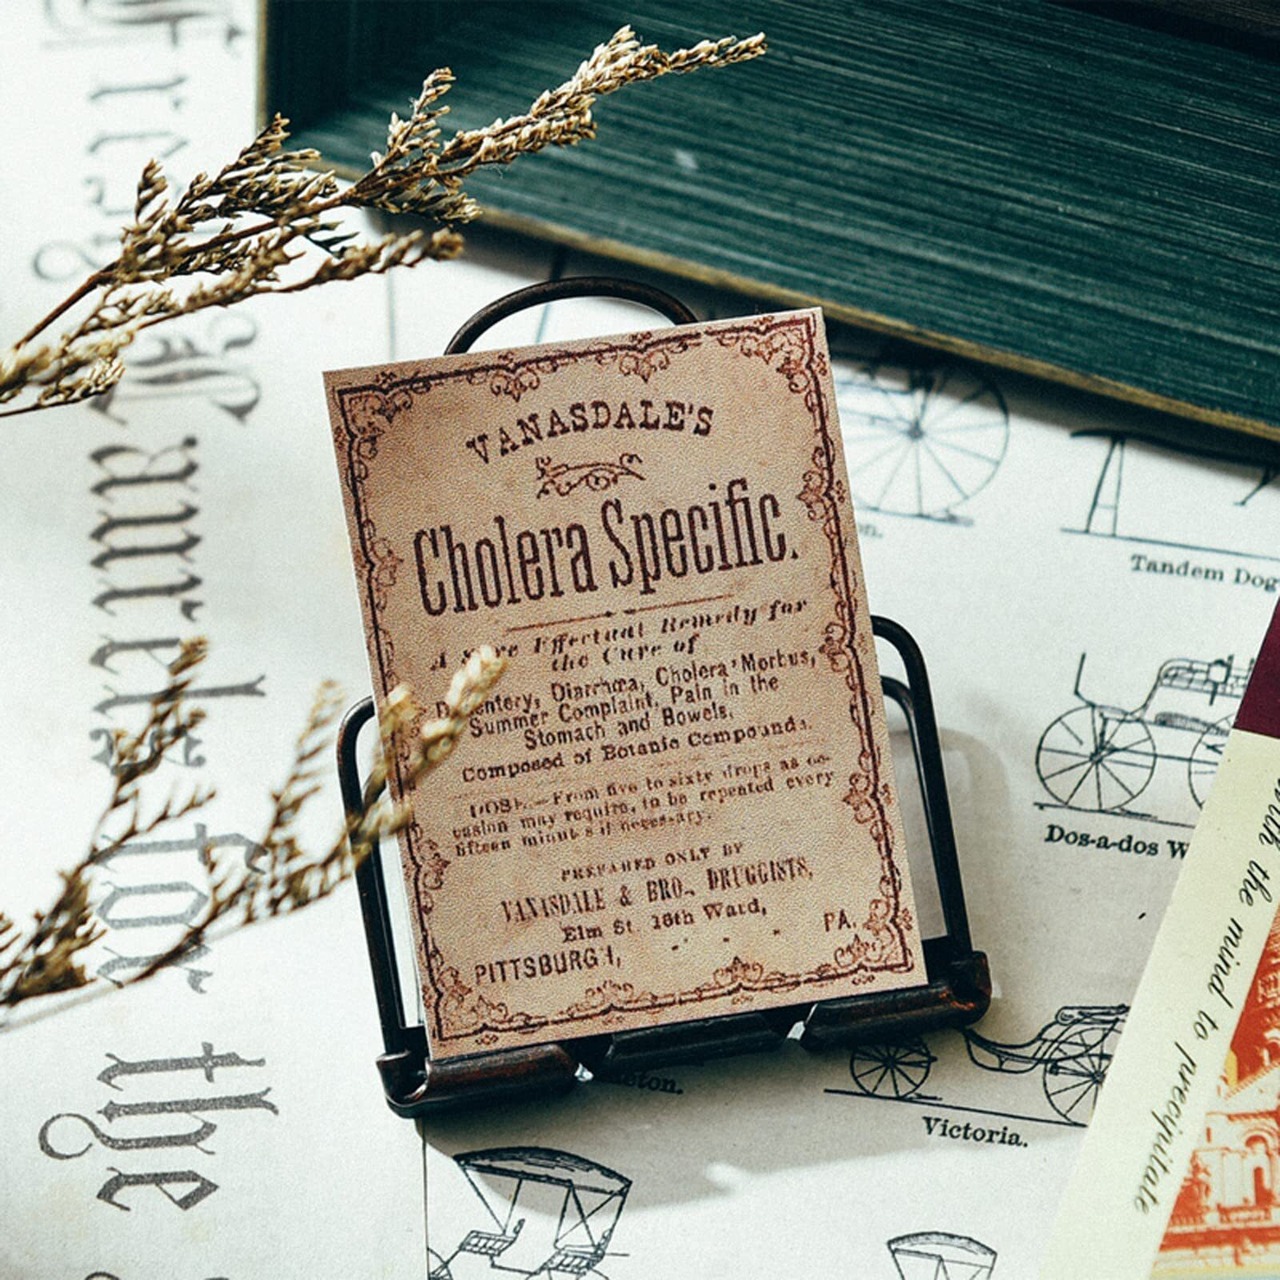 VANASDALE'S
Cholera Specific.
A Sure Effectual Remedy for
the Cure of
Dysentery, Diarrhœa, Cholera Morbus,
Summer Complaint, Pain in the
Stomach and Bowels.
Composed of Botanic Compounds.
DOSE.—From five to sixty drops as oc-
casion may require, to be repeated every
fifteen minutes if necessary.
PREPARED ONLY BY
VANASDALE & BRO., DRUGGISTS,
Elm St. 16th Ward,
PITTSBURGH, PA.
for the
Tandem Dog
Dos-a-dos W
Victoria.
eton.
with the mind to precipitate